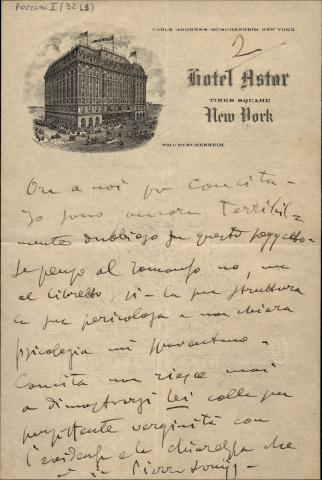 Puccini I/32 (1)
CABLE ADDRESS-MUSCHENHEIM, NEW YORK
2
Hotel Astor
TIMES SQUARE
New York
WM. C. MUSCHENHEIM
Ora a noi per Concita -
Io sono ancora terribil-
mente dubbioso su questo soggetto.
Se penso al romanzo no, ma
al libretto, si - la sua struttura
la sua pericolosa e non chiara
psicologia mi spaventano -
Concita non riesce mai
a dimostrarsi lei colla sua
verginità con
l'evidenza e la chiarezza che